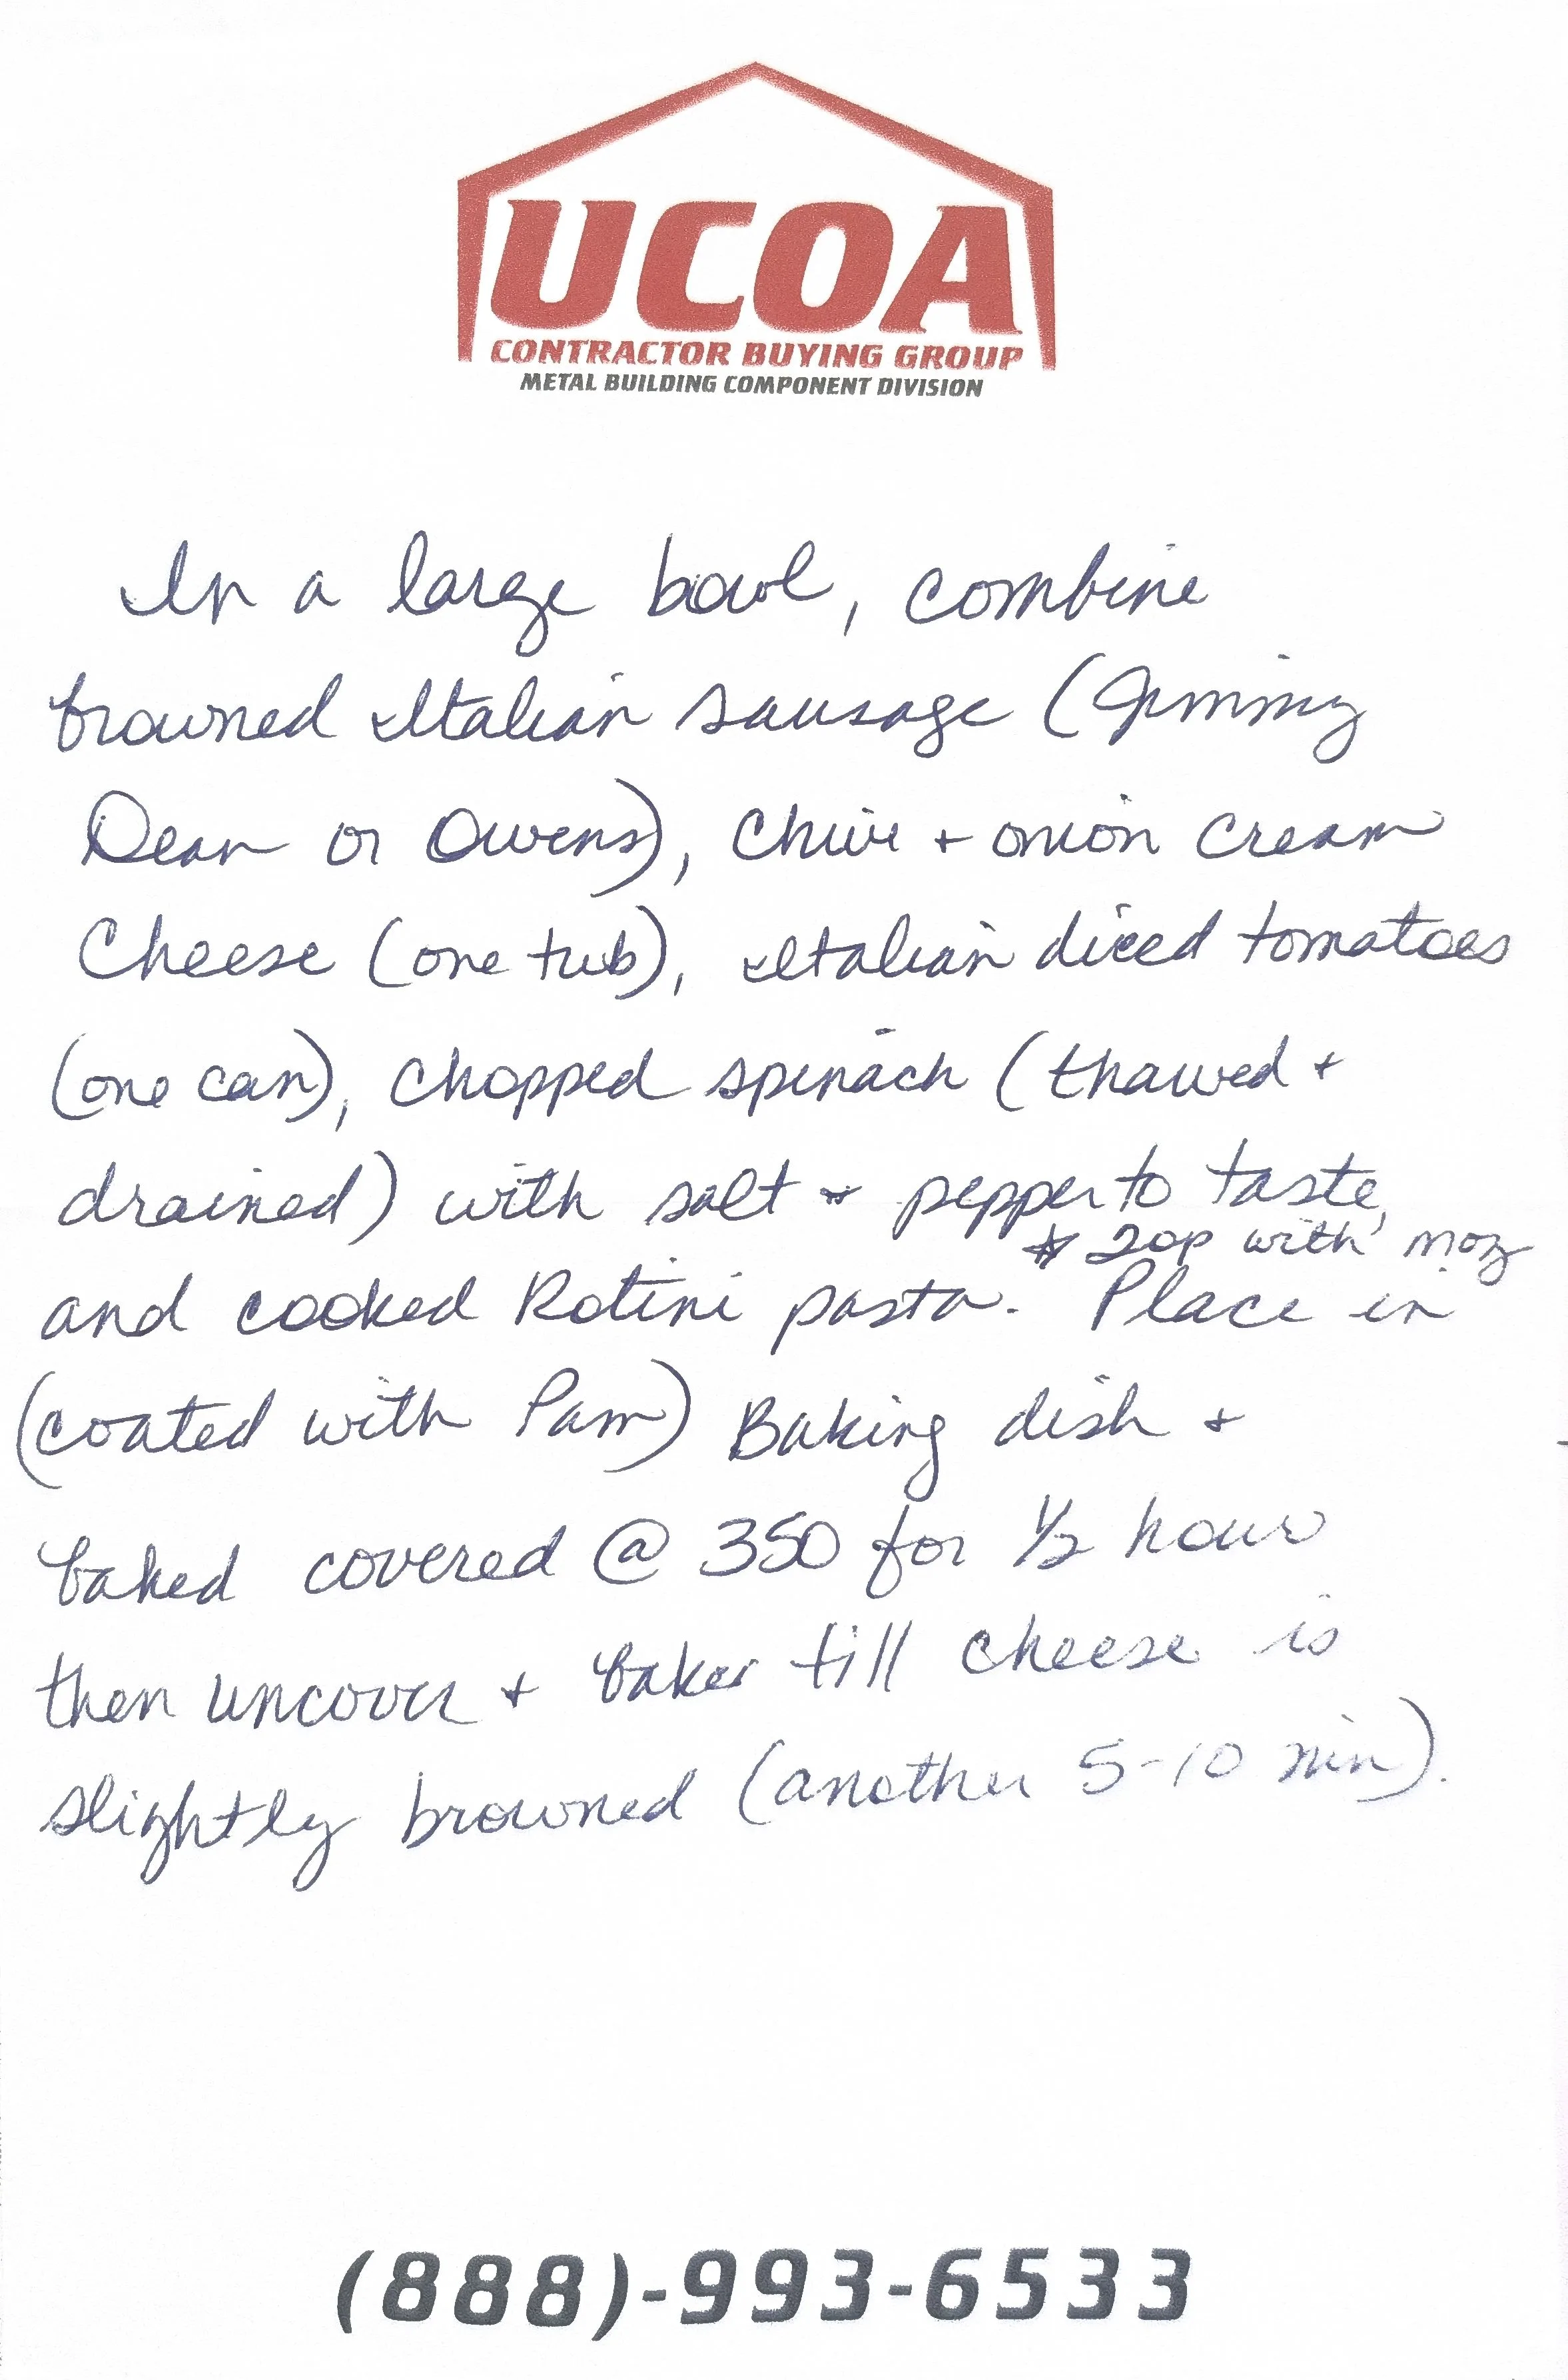 UCOA
CONTRACTOR BUYING GROUP
METAL BUILDING COMPONENT DIVISION
In a large bowl, combine
browned Italian sausage (Jimmy
Dean or Owens), Chive + onion cream
Cheese (one tub), Italian diced tomatoes
(one can), chopped spinach (thawed +
drained) with salt + pepper to taste,
* Top with moz
and cooked Rotini pasta. Place in
(coated with Pam) Baking dish +
baked covered @ 350 for 1/2 hour
then uncover + baker till cheese is
slightly browned (another 5-10 min).
(888)-993-6533